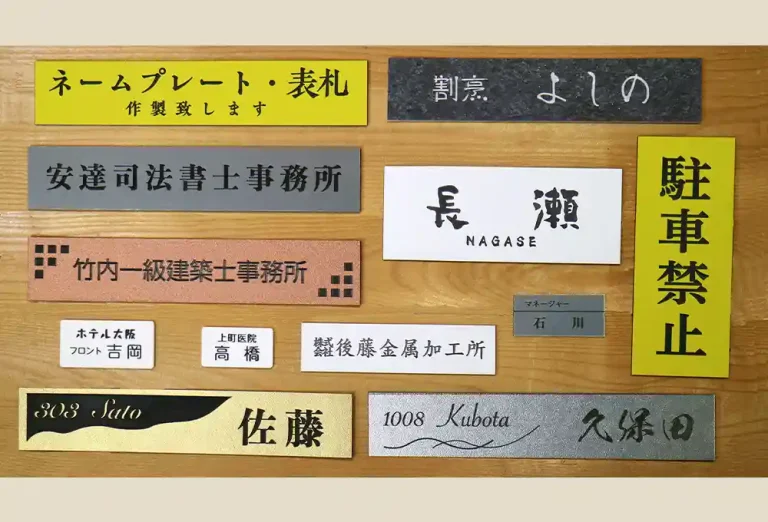 ネームプレート・表札
作製致します
割烹 よしの
安達司法書士事務所
長 瀬
NAGASE
駐車禁止
竹内一級建築士事務所
マネージャー
石 川
ホテル大阪
フロント 吉岡
上町医院
高橋
株式会社後藤金属加工所
303 Sato
佐藤
1008 Kubota
久保田